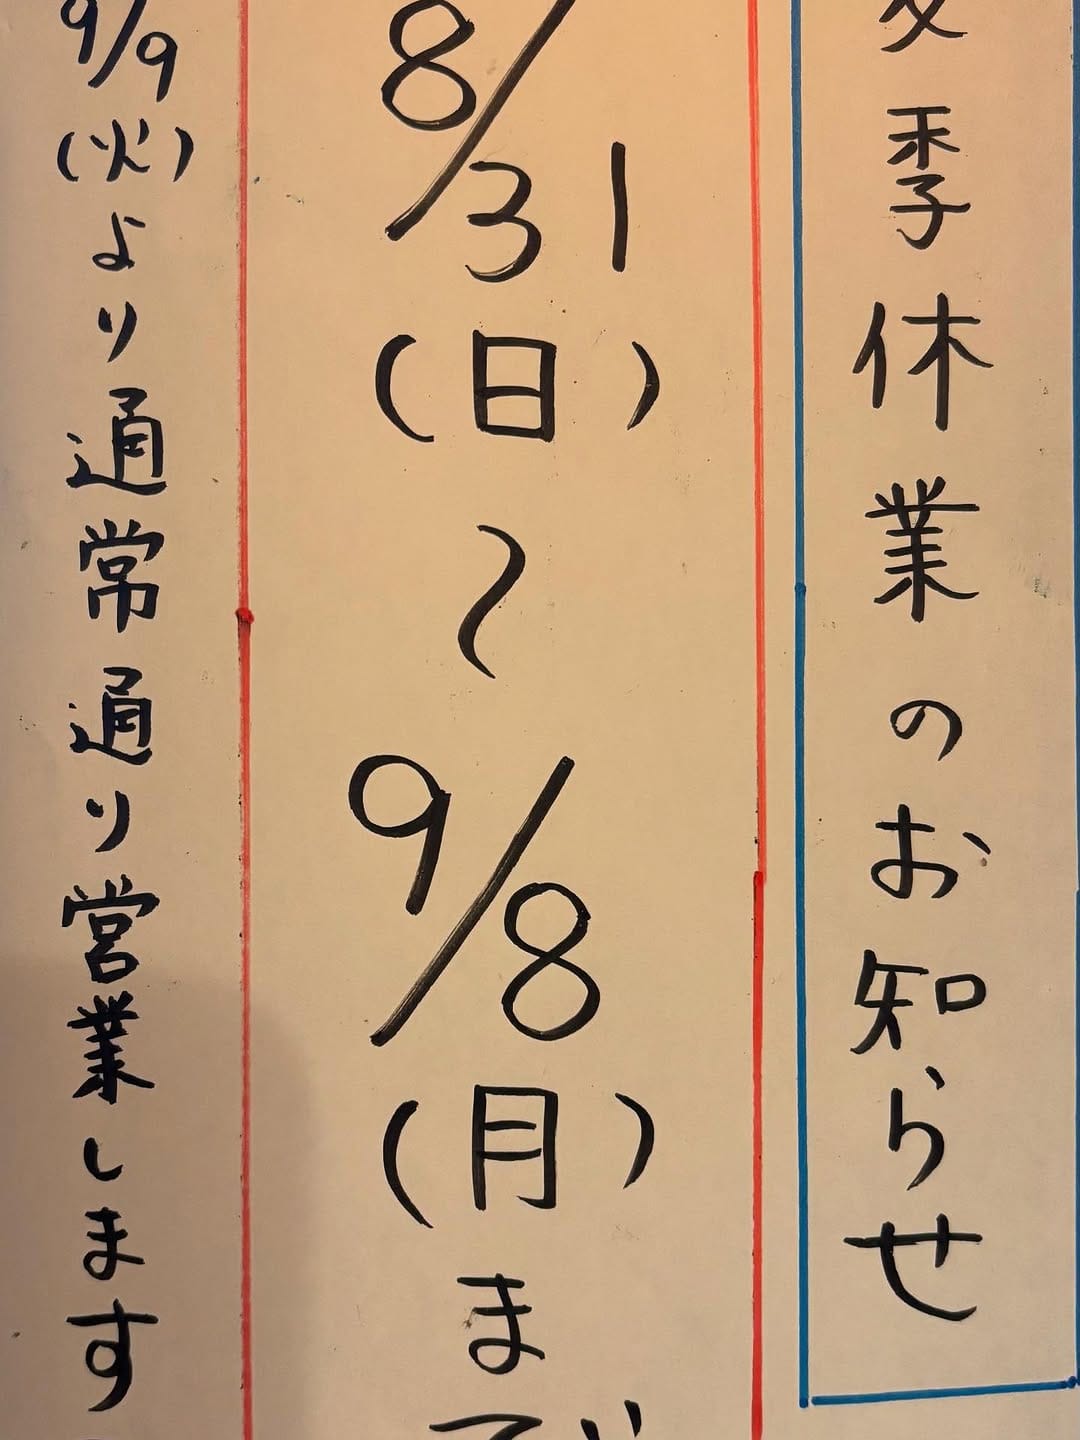 季休業のお知らせ
8/31(日)～9/8(月)まで
9/9(火)より通常通り営業します